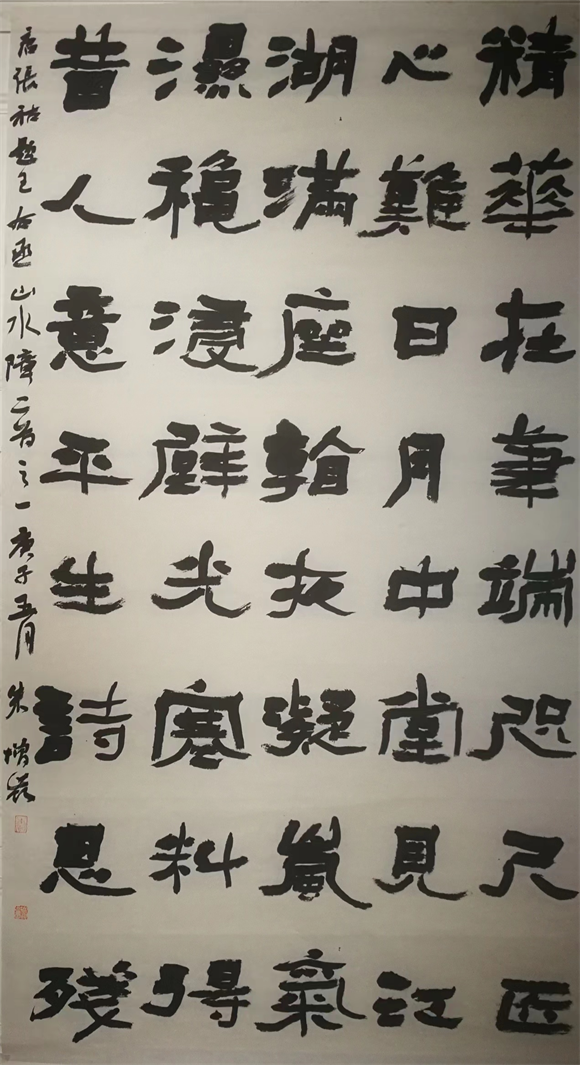 精華在筆端咫尺匠
心難日月中堂見江
湖滿座看夜凝嵐氣
濕穐浸壁光寒料得
昔人意平生詩思殘
唐張祜題王右丞山水障二首之一庚子五月朱增